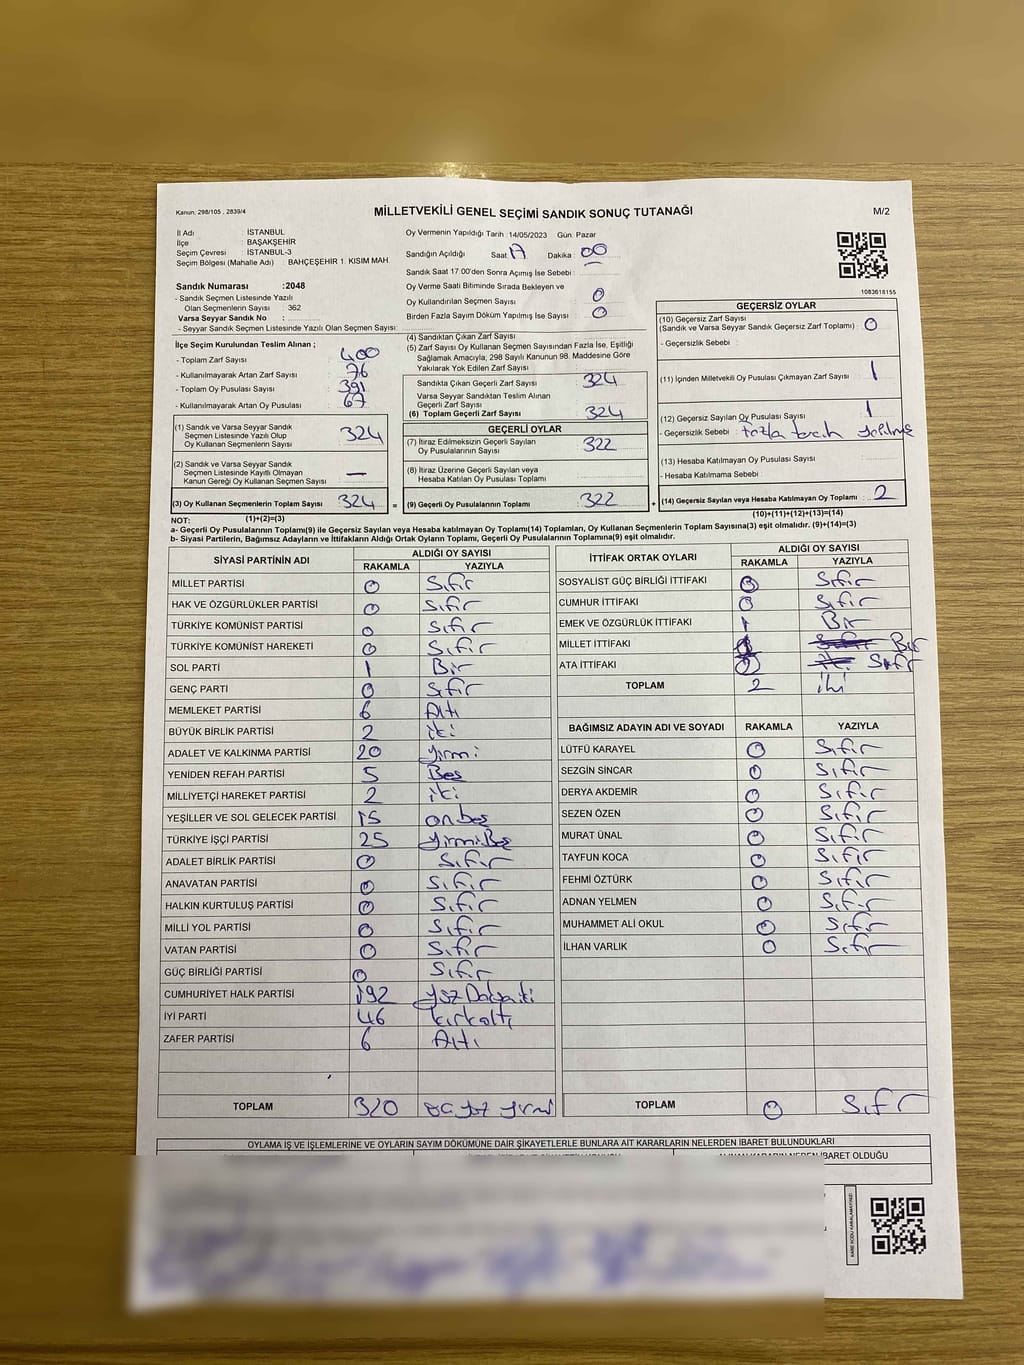 Kanun, 298/105 , 2839/4
MİLLETVEKİLİ GENEL SEÇİMİ SANDIK SONUÇ TUTANAĞI
M/2
İl Adı : İSTANBUL
İlçe : BAŞAKŞEHİR
Seçim Çevresi : İSTANBUL-3
Seçim Bölgesi (Mahalle Adı) : BAHÇEŞEHİR 1. KISIM MAH.
Sandık Numarası :2048
- Sandık Seçmen Listesinde Yazılı
Olan Seçmenlerin Sayısı : 362
Varsa Seyyar Sandık No :
- Seyyar Sandık Seçmen Listesinde Yazılı Olan Seçmen Sayısı:
İlçe Seçim Kurulundan Teslim Alınan ;
- Toplam Zarf Sayısı : 400
- Kullanılmayarak Artan Zarf Sayısı : 76
- Toplam Oy Pusulası Sayısı : 391
- Kullanılmayarak Artan Oy Pusulası : 67
(1) Sandık ve Varsa Seyyar Sandık
Seçmen Listesinde Yazılı Olup
Oy Kullanan Seçmenlerin Sayısı : 324
(2) Sandık ve Varsa Seyyar Sandık
Seçmen Listesinde Kayıtlı Olmayan
Kanun Gereği Oy Kullanan Seçmen Sayısı : —
(3) Oy Kullanan Seçmenlerin Toplam Sayısı : 324
(1)+(2)=(3)
Oy Vermenin Yapıldığı Tarih : 14/05/2023 Gün: Pazar
Sandığın Açıldığı Saat : 17 Dakika : 00
Sandık Saat 17:00'den Sonra Açılmış İse Sebebi :
Oy Verme Saati Bitiminde Sırada Bekleyen ve
Oy Kullandırılan Seçmen Sayısı : 0
Birden Fazla Sayım Döküm Yapılmış İse Sayısı : 0
(4) Sandıktan Çıkan Zarf Sayısı :
(5) Zarf Sayısı Oy Kullanan Seçmen Sayısından Fazla İse, Eşitliği
Sağlamak Amacıyla, 298 Sayılı Kanunun 98. Maddesine Göre
Yakılarak Yok Edilen Zarf Sayısı :
Sandıkta Çıkan Geçerli Zarf Sayısı : 324
Varsa Seyyar Sandıktan Teslim Alınan
Geçerli Zarf Sayısı :
(6) Toplam Geçerli Zarf Sayısı : 324
GEÇERLİ OYLAR
(7) İtiraz Edilmeksizin Geçerli Sayılan
Oy Pusulalarının Sayısı : 322
(8) İtiraz Üzerine Geçerli Sayılan veya
Hesaba Katılan Oy Pusulaları Toplamı :
= (9) Geçerli Oy Pusulalarının Toplamı : 322 +
1083618155
GEÇERSİZ OYLAR
(10) Geçersiz Zarf Sayısı
(Sandık ve Varsa Seyyar Sandık Geçersiz Zarf Toplamı) : 0
- Geçersizlik Sebebi :
(11) İçinden Milletvekili Oy Pusulası Çıkmayan Zarf Sayısı : 1
(12) Geçersiz Sayılan Oy Pusulası Sayısı : 1
- Geçersizlik Sebebi : fazla tercih yapılmış
(13) Hesaba Katılmayan Oy Pusulası Sayısı :
- Hesaba Katılmama Sebebi :
(14) Geçersiz Sayılan veya Hesaba Katılmayan Oy Toplamı : 2
(10)+(11)+(12)+(13)=(14)
NOT:
a- Geçerli Oy Pusulalarının Toplamı(9) ile Geçersiz Sayılan veya Hesaba katılmayan Oy Toplamı(14) Toplamları, Oy Kullanan Seçmenlerin Toplam Sayısına(3) eşit olmalıdır. (9)+(14)=(3)
b- Siyasi Partilerin, Bağımsız Adayların ve İttifakların Aldığı Ortak Oyların Toplamı, Geçerli Oy Pusulalarının Toplamına(9) eşit olmalıdır.
SİYASİ PARTİNİN ADI ALDIĞI OY SAYISI
RAKAMLA YAZIYLA
MİLLET PARTİSİ 0 Sıfır
HAK VE ÖZGÜRLÜKLER PARTİSİ 0 Sıfır
TÜRKİYE KOMÜNİST PARTİSİ 0 Sıfır
TÜRKİYE KOMÜNİST HAREKETİ 0 Sıfır
SOL PARTİ 1 Bir
GENÇ PARTİ 0 Sıfır
MEMLEKET PARTİSİ 6 Altı
BÜYÜK BİRLİK PARTİSİ 2 iki
ADALET VE KALKINMA PARTİSİ 20 yirmi
YENİDEN REFAH PARTİSİ 5 Beş
MİLLİYETÇİ HAREKET PARTİSİ 2 iki
YEŞİLLER VE SOL GELECEK PARTİSİ 15 onbeş
TÜRKİYE İŞÇİ PARTİSİ 25 yirmiBeş
ADALET BİRLİK PARTİSİ 0 Sıfır
ANAVATAN PARTİSİ 0 Sıfır
HALKIN KURTULUŞ PARTİSİ 0 Sıfır
MİLLİ YOL PARTİSİ 0 Sıfır
VATAN PARTİSİ 0 Sıfır
GÜÇ BİRLİĞİ PARTİSİ 0 Sıfır
CUMHURİYET HALK PARTİSİ 192 yüzDoksaniki
İYİ PARTİ 46 kırkaltı
ZAFER PARTİSİ 6 Altı
TOPLAM 320 üç yüz yirmi
İTTİFAK ORTAK OYLARI ALDIĞI OY SAYISI
RAKAMLA YAZIYLA
SOSYALİST GÜÇ BİRLİĞİ İTTİFAKI 0 Sıfır
CUMHUR İTTİFAKI 0 Sıfır
EMEK VE ÖZGÜRLÜK İTTİFAKI 1 Bir
MİLLET İTTİFAKI 1 Bir
ATA İTTİFAKI 0 Sıfır
TOPLAM 2 iki
BAĞIMSIZ ADAYIN ADI VE SOYADI RAKAMLA YAZIYLA
LÜTFÜ KARAYEL 0 Sıfır
SEZGİN SİNCAR 0 Sıfır
DERYA AKDEMİR 0 Sıfır
SEZEN ÖZEN 0 Sıfır
MURAT ÜNAL 0 Sıfır
TAYFUN KOCA 0 Sıfır
FEHMİ ÖZTÜRK 0 Sıfır
ADNAN YELMEN 0 Sıfır
MUHAMMET ALİ OKUL 0 Sıfır
İLHAN VARLIK 0 Sıfır
TOPLAM 0 Sıfır
OYLAMA İŞ VE İŞLEMLERİNE VE OYLARIN SAYIM DÖKÜMÜNE DAİR ŞİKAYETLERLE BUNLARA AİT KARARLARIN NELERDEN İBARET BULUNDUKLARI
ALINAN KARARIN NEDEN İBARET OLDUĞU
KARE KODU KARALAMAYINIZ!